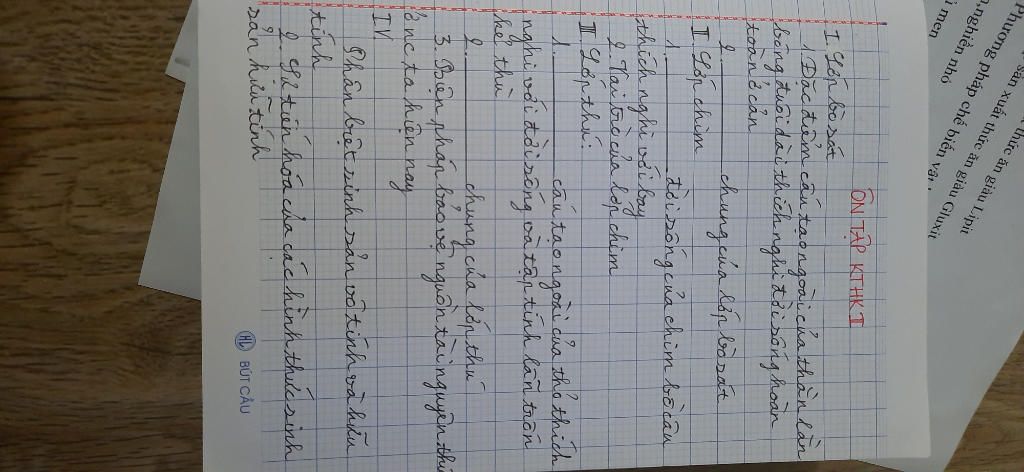 ÔN TẬP KTHKI
I. Lớp bò sát
1. Đặc điểm cấu tạo ngoài của thằn lằn
bóng đuôi dài thích nghi đời sống hoàn
toàn ở cạn
2. ______ chung của lớp bò sát
II Lớp chim
1. ______ đời sống của chim bồ câu
thích nghi với bay
2. Vai trò của lớp chim
III Lớp thú:
1. ______ cấu tạo ngoài của thỏ thích
nghi với đời sống và tập tính lẩn trốn
kẻ thù
2. ______ chung của lớp thú
3. Biện pháp bảo vệ nguồn tài nguyên thú
ở nc ta hiện nay
IV
1. Phân biệt sinh sản vô tính và hữu
tính
2. Sự tiến hóa của các hình thức sinh
sản hữu tính
HL BÚT CÂU
Phương pháp chế biến vật
sản xuất thức ăn giàu Gluxit
thức ăn giàu Lipit
nghiền nhỏ
men